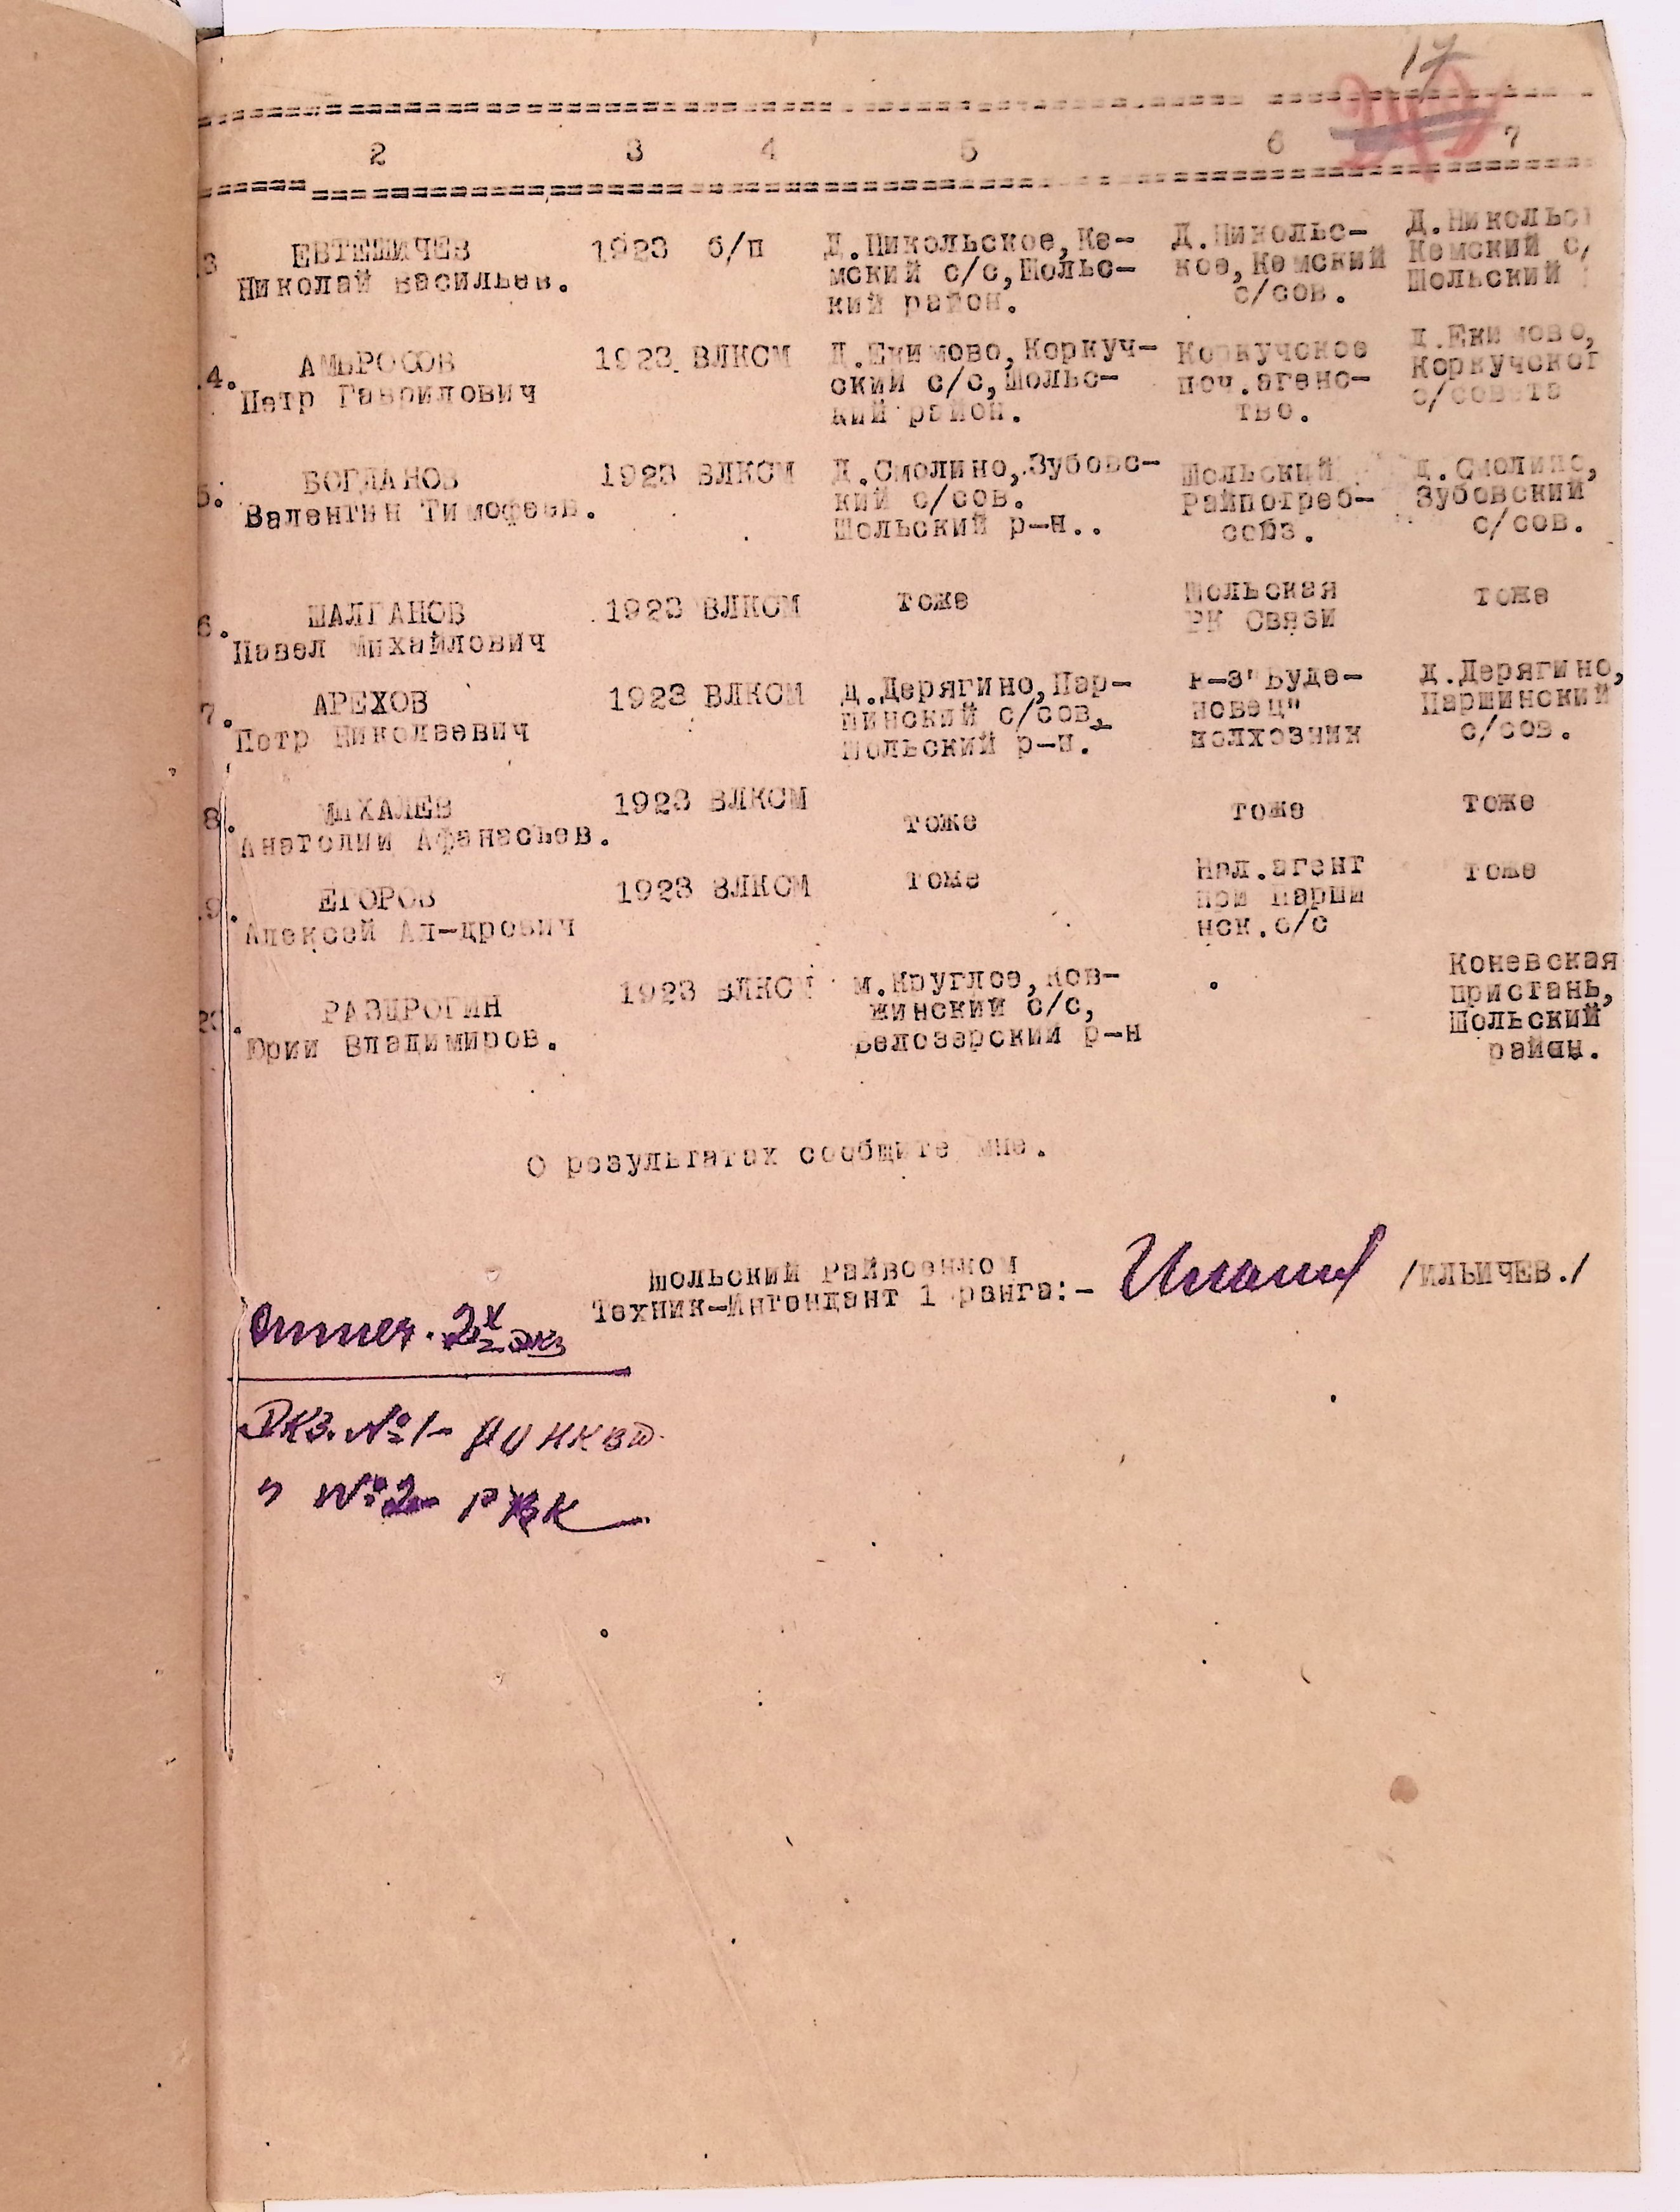 17
2 3 4 5 6 7
3 ЕВТЕШИЧЕВ 1923 б/п Д.Никольское,Ке- Д.Никольс- Д.Никольс
Николай Васильев. мский с/с,Шольс- кое,Кемский Кемский с/
кий район. с/сов. Шольский
4. АМБРОСОВ 1923 ВЛКСМ Д.Екимово,Коркуч- Коркучское д.Екимово,
Петр Гаврилович ский с/с,Шольс- поч.агенс- Коркучског
кий район. тво. с/совета
5. БОГДАНОВ 1923 ВЛКСМ Д.Смолино,Зубовс- Шольский д.Смолино,
Валентин Тимофеев. кий с/сов. Райпотреб- Зубовский
Шольский р-н.. союз. с/сов.
6. ШАЛГАНОВ 1923 ВЛКСМ тоже Шольская тоже
Павел Михайлович РК Связи
7. АРЕХОВ 1923 ВЛКСМ д.Дерягино,Пар- к-з"Буде- д.Дерягино,
Петр Николаевич шинский с/сов, новец" Паршинский
Шольский р-н. колхозник с/сов.
8. МИХАЛЕВ 1923 ВЛКСМ тоже тоже тоже
Анатолий Афанасьев.
9. ЕГОРОВ 1923 ВЛКСМ тоже Нал.агент тоже
Алексей Ал-дрович при Парши
нск.с/с
20. РАЗДРОГИН 1923 ВЛКСМ м.Круглое,Ков- Коневская
Юрий Владимиров. жинский с/с, пристань,
Белозерский р-н Шольский
район.
О результатах сообщите мне.
Шольский Райвоенком
Техник-Интендант 1 ранга:- /ИЛЬИЧЕВ./
Отпеч. 2х экз
Экз. №1- РО НКВД
" №2- РВК